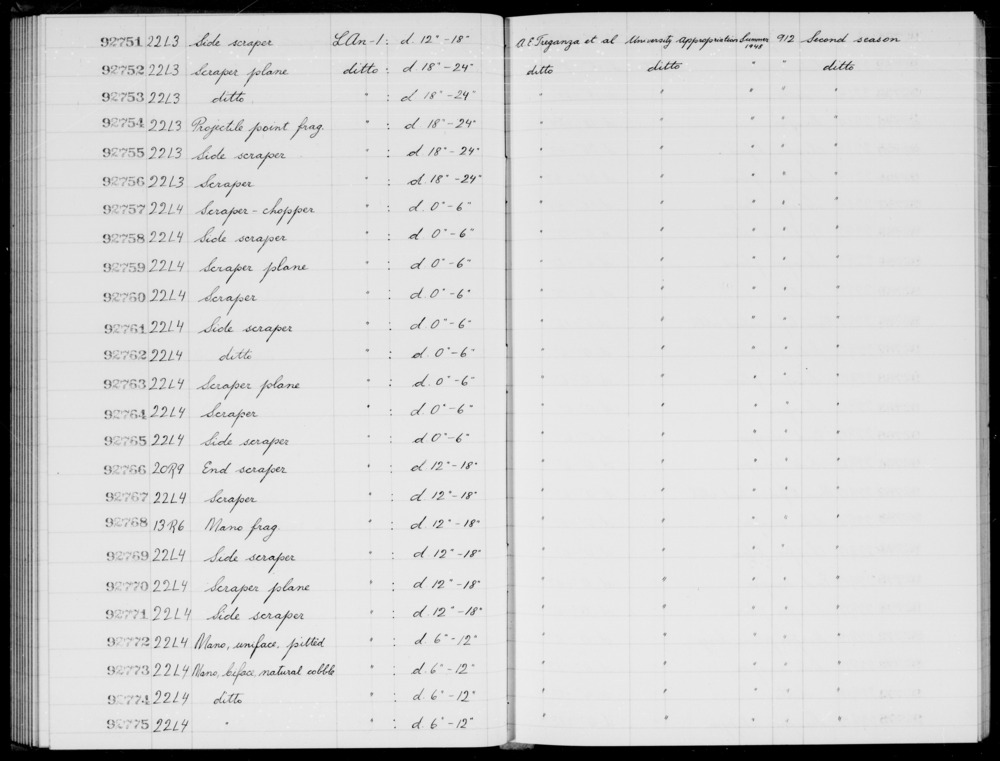 92751 22L3 Side scraper LAn-1: d. 12"-18" A.E. Treganza et al University Appropriation Summer 1948 912 Second season
92752 22L3 Scraper plane ditto: d 18"-24" ditto ditto " " ditto
92753 22L3 ditto " : d 18"-24" " " " " "
92754 22L3 Projectile point frag. " : d 18"-24" " " " " "
92755 22L3 Side scraper " : d. 18"-24" " " " " "
92756 22L3 Scraper " : d. 18"-24" " " " " "
92757 22L4 Scraper-chopper " : d. 0"-6" " " " " "
92758 22L4 Side scraper " : d. 0"-6" " " " " "
92759 22L4 Scraper plane " : d. 0"-6" " " " " "
92760 22L4 Scraper " : d. 0"-6" " " " " "
92761 22L4 Side scraper " : d. 0"-6" " " " " "
92762 22L4 ditto " : d. 0"-6" " " " " "
92763 22L4 Scraper plane " : d. 0"-6" " " " " "
92764 22L4 Scraper " : d. 0"-6" " " " " "
92765 22L4 Side scraper " : d 0"-6" " " " " "
92766 20R9 End scraper " : d. 12"-18" " " " " "
92767 22L4 Scraper " : d. 12"-18" " " " " "
92768 13R6 Mano frag. " : d. 12"-18" " " " " "
92769 22L4 Side scraper " : d 12"-18" " " " " "
92770 22L4 Scraper plane " : d. 12"-18" " " " " "
92771 22L4 Side scraper " : d. 12"-18" " " " " "
92772 22L4 Mano, uniface, pitted " : d. 6"-12" " " " " "
92773 22L4 Mano, biface, natural cobble " : d. 6"-12" " " " " "
92774 22L4 ditto " : d. 6"-12" " " " " "
92775 22L4 " " : d. 6"-12" " " " " "